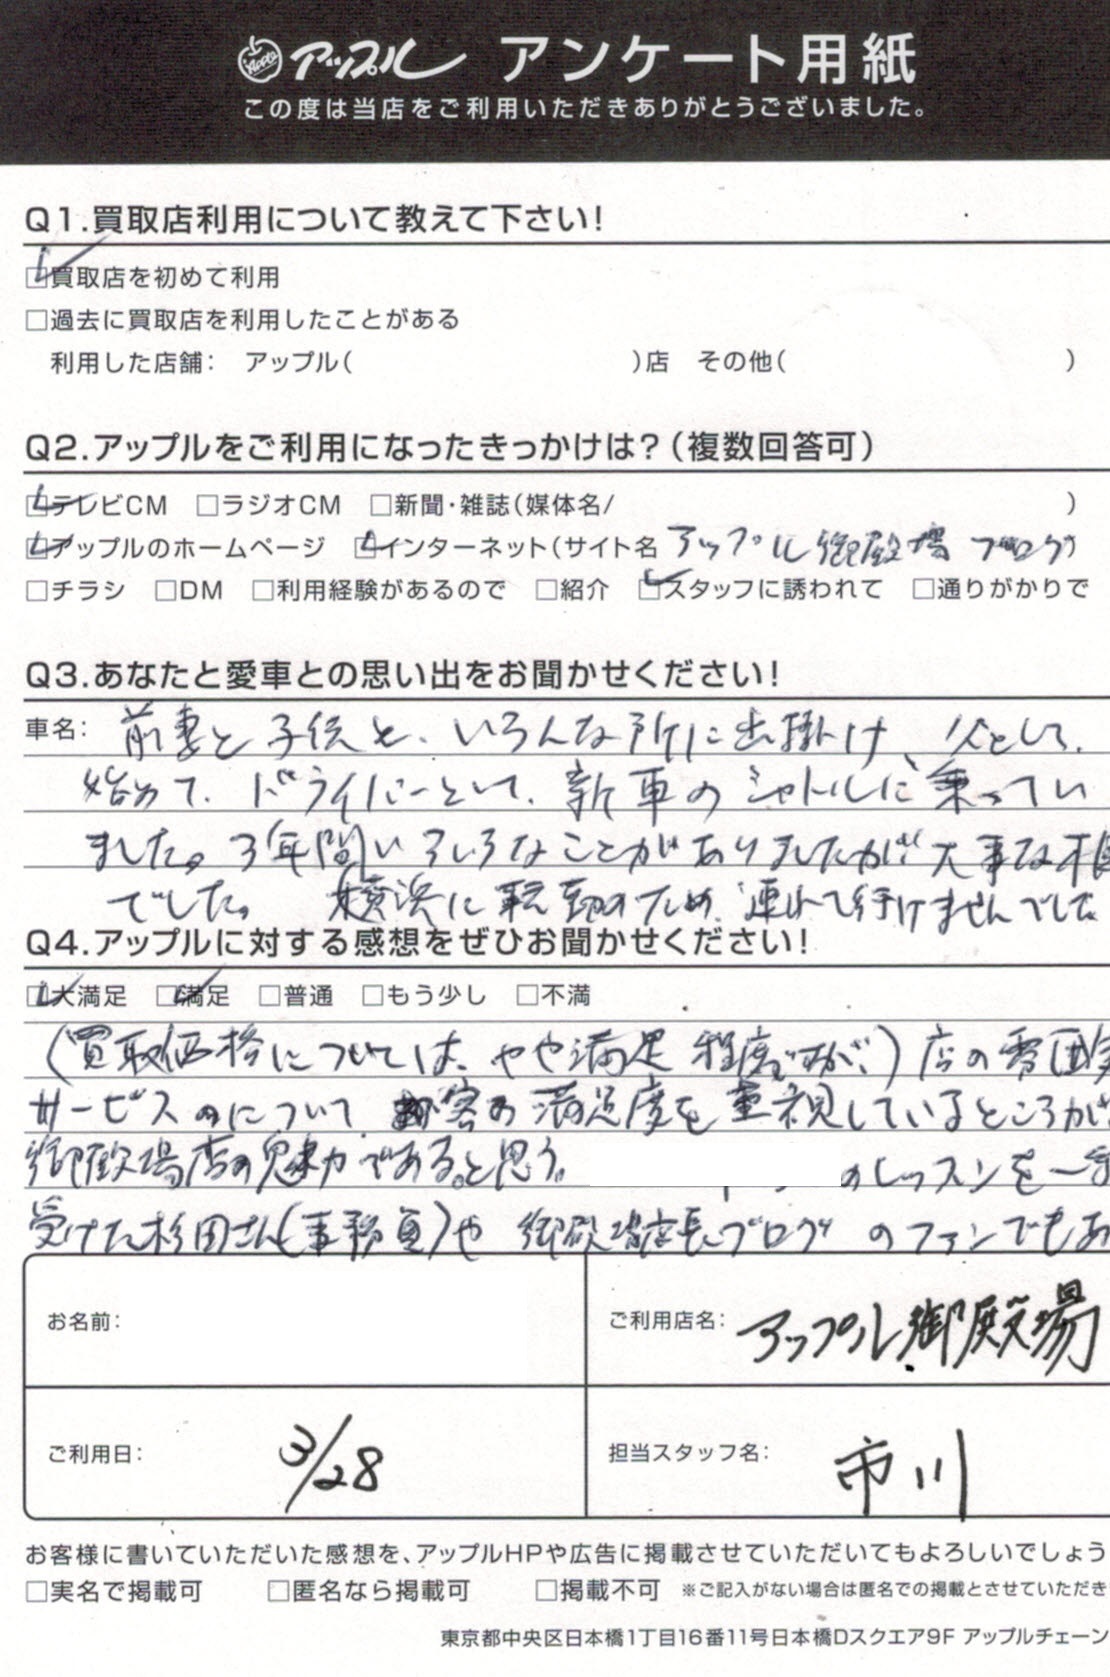 アップル アンケート用紙
この度は当店をご利用いただきありがとうございました。
Q1.買取店利用について教えて下さい!
□買取店を初めて利用
□過去に買取店を利用したことがある
利用した店舗: アップル( )店 その他( )
Q2.アップルをご利用になったきっかけは?(複数回答可)
□テレビCM □ラジオCM □新聞・雑誌(媒体名/ )
□アップルのホームページ □インターネット(サイト名 アップル御殿場 ブログ)
□チラシ □DM □利用経験があるので □紹介 □スタッフに誘われて □通りがかりで
Q3.あなたと愛車との思い出をお聞かせください!
車名: 前妻と子供と、いろんな所に出掛け、父として、
始めて、ドライバーとして、新車のシャトルに乗ってい
ました。3年間いろいろなことがありましたが、大事な相
でした。 横浜に転勤のため、連れて行けませんでした
Q4.アップルに対する感想をぜひお聞かせください!
□大満足 □満足 □普通 □もう少し □不満
(買取価格については、やや満足程度ですが)店の雰囲気
サービスのについて お客の満足度を重視しているところが
御殿場店の魅力である。と思う。 のレッスンを一番
受けた杉田さん(事務員)や 御殿場店長ブログ のファンでもあ
お名前:
ご利用店名: アップル御殿場
ご利用日: 3/28
担当スタッフ名: 市川
お客様に書いていただいた感想を、アップルHPや広告に掲載させていただいてもよろしいでしょう
□実名で掲載可 □匿名なら掲載可 □掲載不可 ※ご記入がない場合は匿名での掲載とさせていただき
東京都中央区日本橋1丁目16番11号日本橋Dスクエア9F アップルチェーン